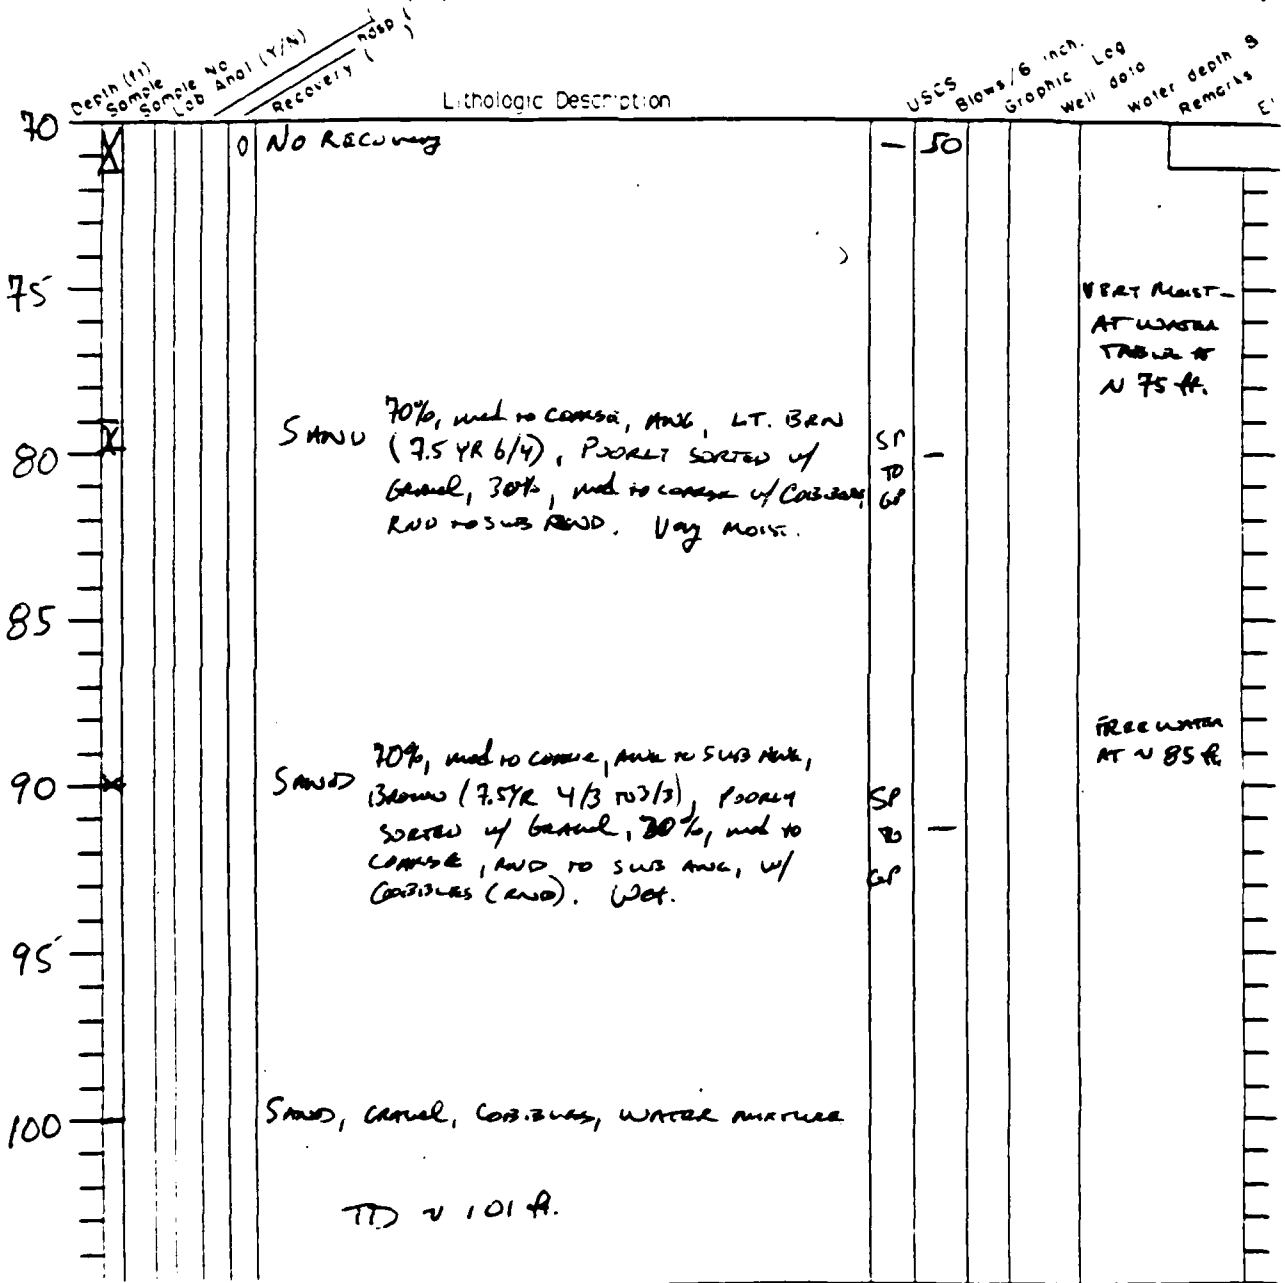 Depth (ft) Sample Sample No Lab Anal (Y/N) Recovery ( ) Hdsp ( ) Lithologic Description USCS Blows/6 inch. Graphic Log Well data Water depth & Remarks
70
0 No Recovery - 50
75
VERY MOIST -
AT WATER
TABLE AT
~ 75 ft.
SAND 70%, med to coarse, ANG, LT. BRN
80 (7.5 YR 6/4), POORLY SORTED w/
Gravel, 30%, med to coarse w/ COBBLES,
RND to SUB RND. Very Moist.
SP
TO
GP
-
85
FREE WATER
AT ~ 85 ft
SAND 70%, med to coarse, ANG to SUB ANG,
90 BROWN (7.5YR 4/3 TO 3/3), POORLY
SORTED w/ Gravel, 30%, med to
COARSE, RND TO SUB ANG, w/
COBBLES (RND). Wet.
SP
TO
GP
-
95
100 SAND, GRAVEL, COBBLES, WATER MIXTURE
TD ~ 101 ft.